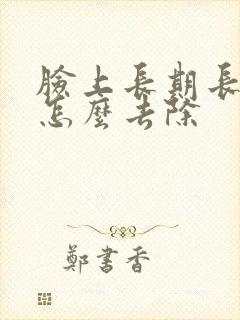 臉上長期長
怎麼去除
鄭書香